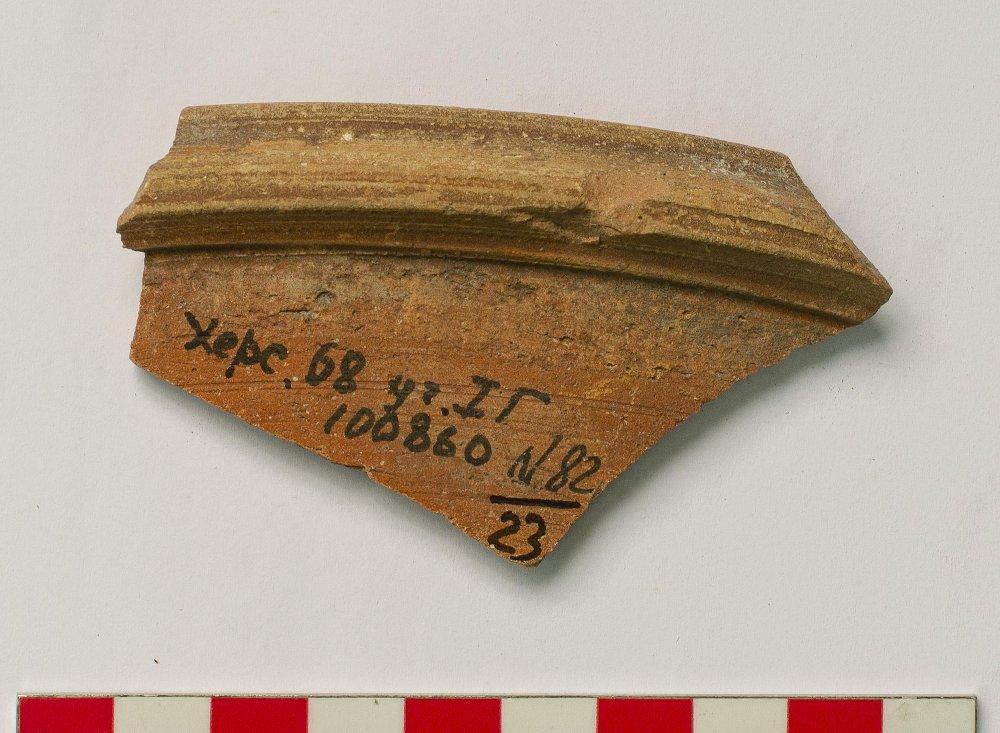 Херс. 68 уч. I Г
100860 N 82
23